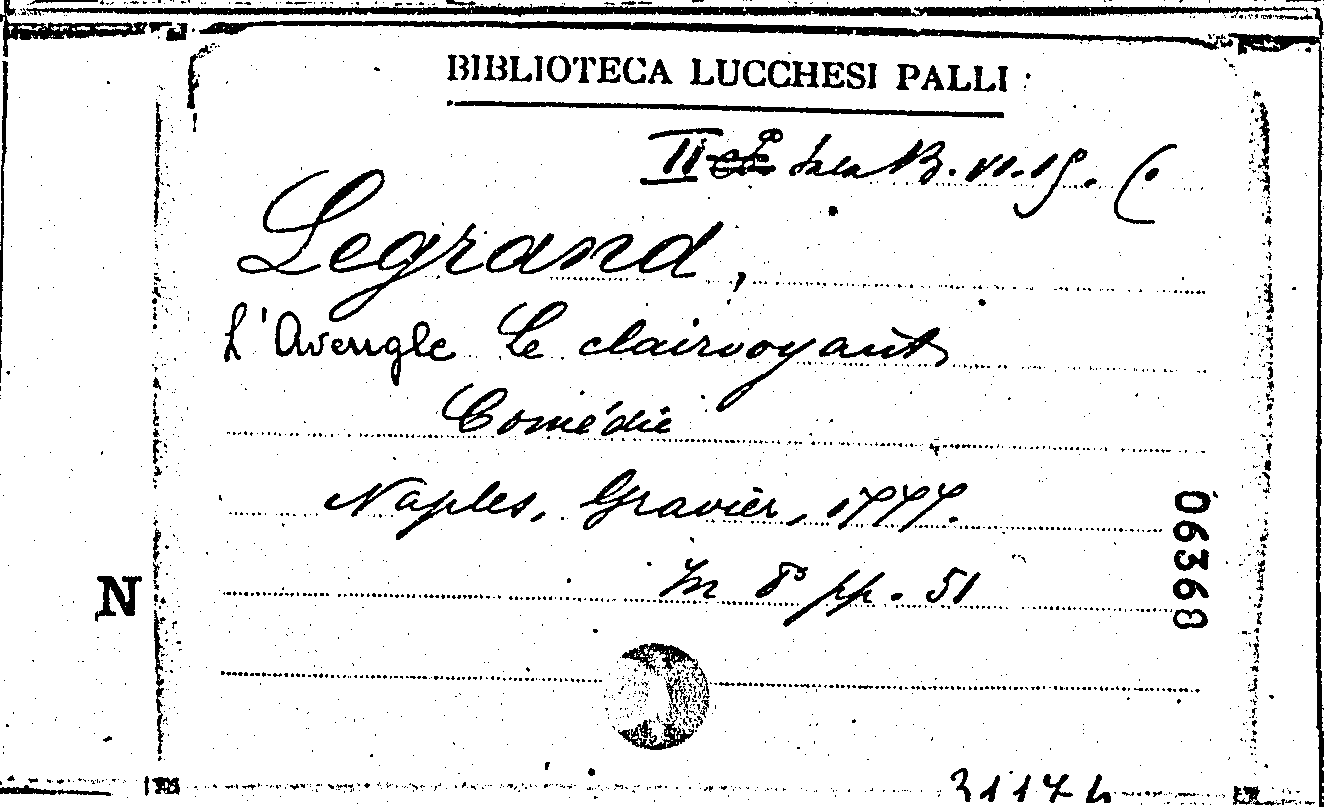 BIBLIOTECA LUCCHESI PALLI
II Sala B. VI. 15. (.
Legrand,
L'Aveugle Le clairvoyant
Comédie
Naples, Gravier, 1777.
In 8° pp. 51
06368
N